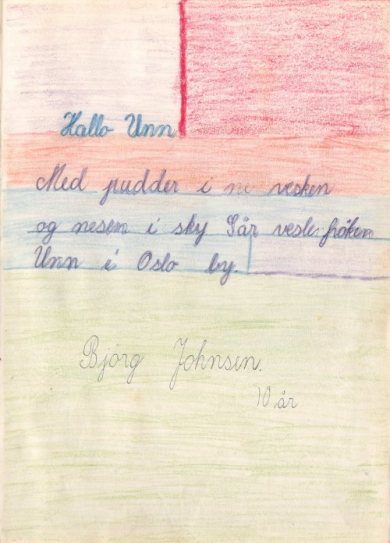 Hallo Unn
Med pudder i vesken
og nesen i sky Går vesle frøken
Unn i Oslo by.
Bjørg Johnsen.
10 år